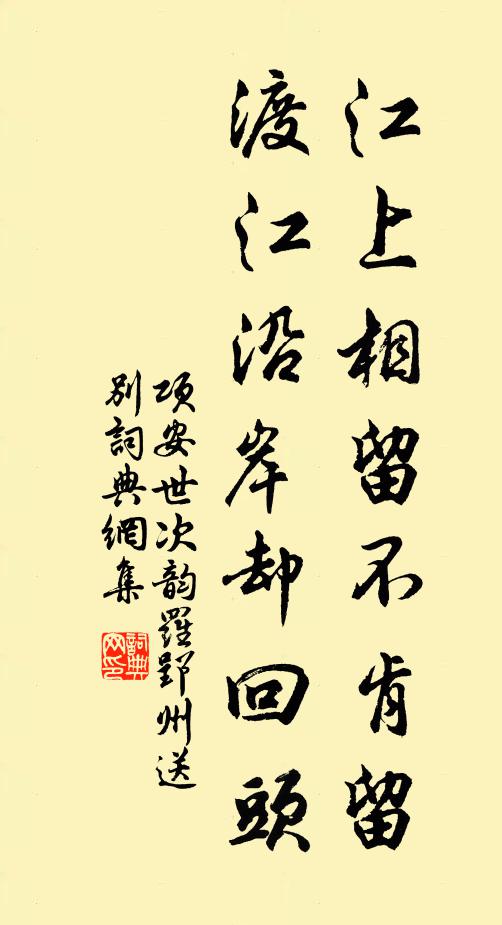 江上相留不肯留
渡江沿岸却回頭
項安世次韵羅郢州送
别詞典網集
詞典
网印